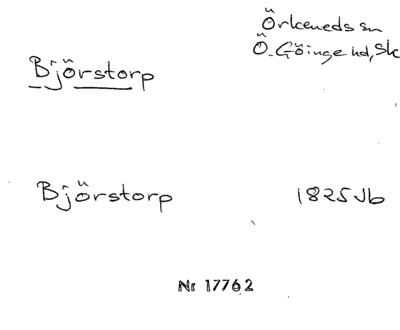 Örkeneds sn
Ö. Göinge hd, Sk
Björstorp
Björstorp 1825 Jb
Nr 17762